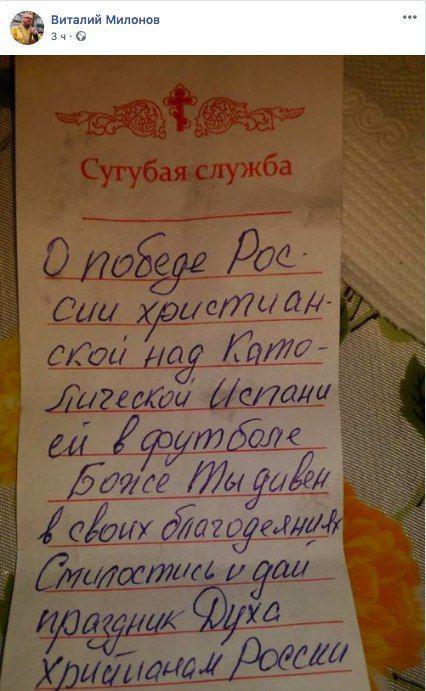 Виталий Милонов
3 ч ·
Сугубая служба
О победе Рос-
сии христиан-
ской над Като-
лической Испани
ей в футболе
Боже Ты дивен
в своих благодеяниях
Смилостись и дай
праздник Духа
Христианам России